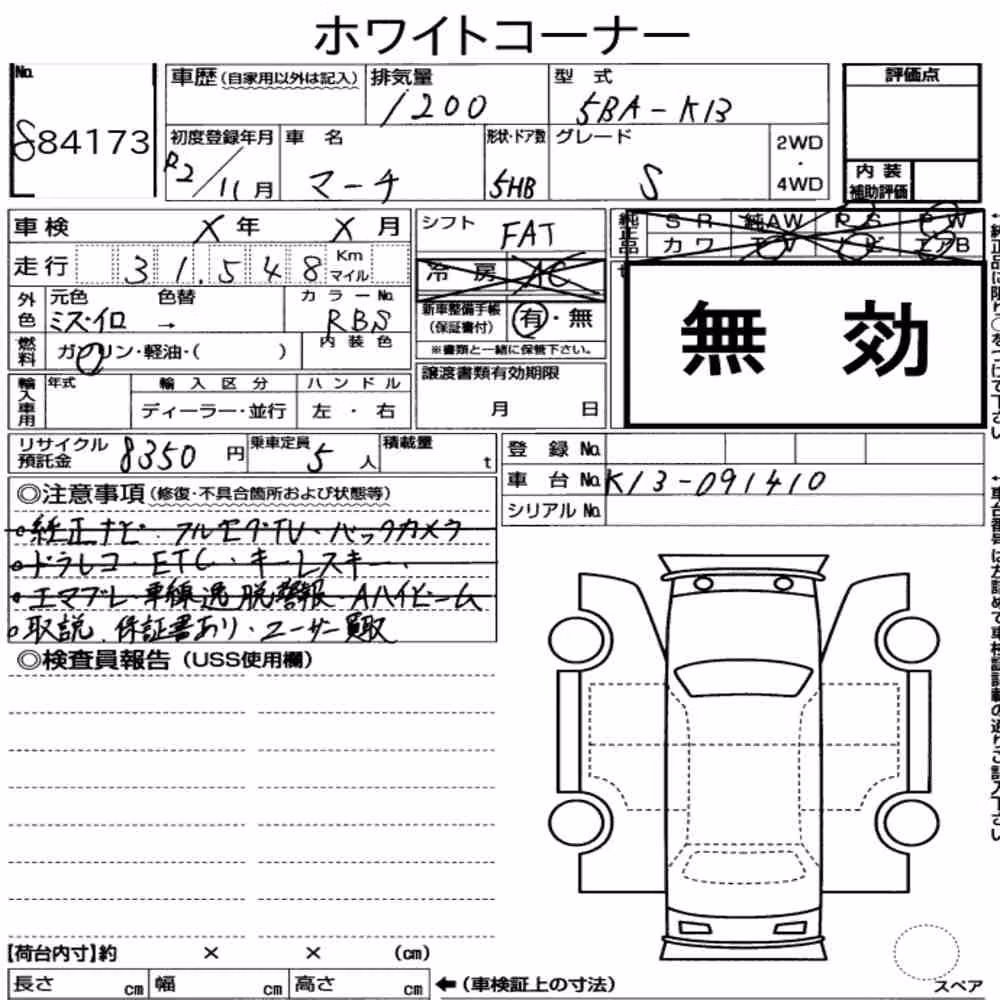 ホワイトコーナー
No.
884173
車歴 (自家用以外は記入)
排気量
1200
型 式
5BA-K13
評価点
初度登録年月
R2/11月
車 名
マーチ
形状・ドア数
5HB
グレード
S
2WD
・
4WD
内 装
補助評価
車検 X 年 X 月
シフト
FAT
純正品
SR 純AW PS PW
カワ TV ナビ エアB
走行 31,548 Km マイル
冷 房 AC
外色
元色 色替
ミズイロ →
カラーNo.
RBS
新車整備手帳
(保証書付)
有・無
無 効
燃料
ガソリン・軽油・( )
内 装 色
※書類と一緒に保管下さい。
輸入車用
年式
輸 入 区 分
ディーラー・並行
ハ ン ド ル
左 ・ 右
譲渡書類有効期限
月 日
リサイクル
預託金
8350 円
乗車定員
5 人
積載量
t
登 録 No.
車 台 No. K13-091410
シリアル No.
◎注意事項 (修復・不具合箇所および状態等)
・純正ナビ・フルセグTV・バックカメラ
・ドラレコ・ETC・キーレスキー・
・エマブレ・車線逸脱警報・Aハイビーム
・取説、保証書あり・ユーザー買取
◎検査員報告 (USS使用欄)
【荷台内寸】約 × × (cm)
長さ cm 幅 cm 高さ cm
←(車検証上の寸法)
スペア